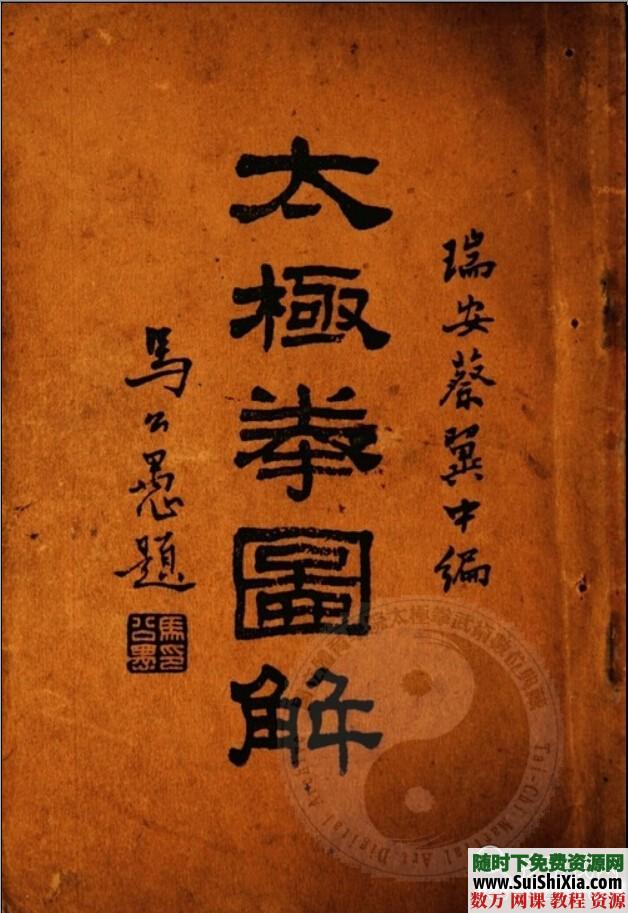 瑞安蔡翼中編
太極拳圖解
馬公愚題
馬印公愚
太極拳武術數位典藏
Tai-Chi Martial Art Digital
随时下免费资源网
www.SuiShiXia.com
数万 网课 教程 资源